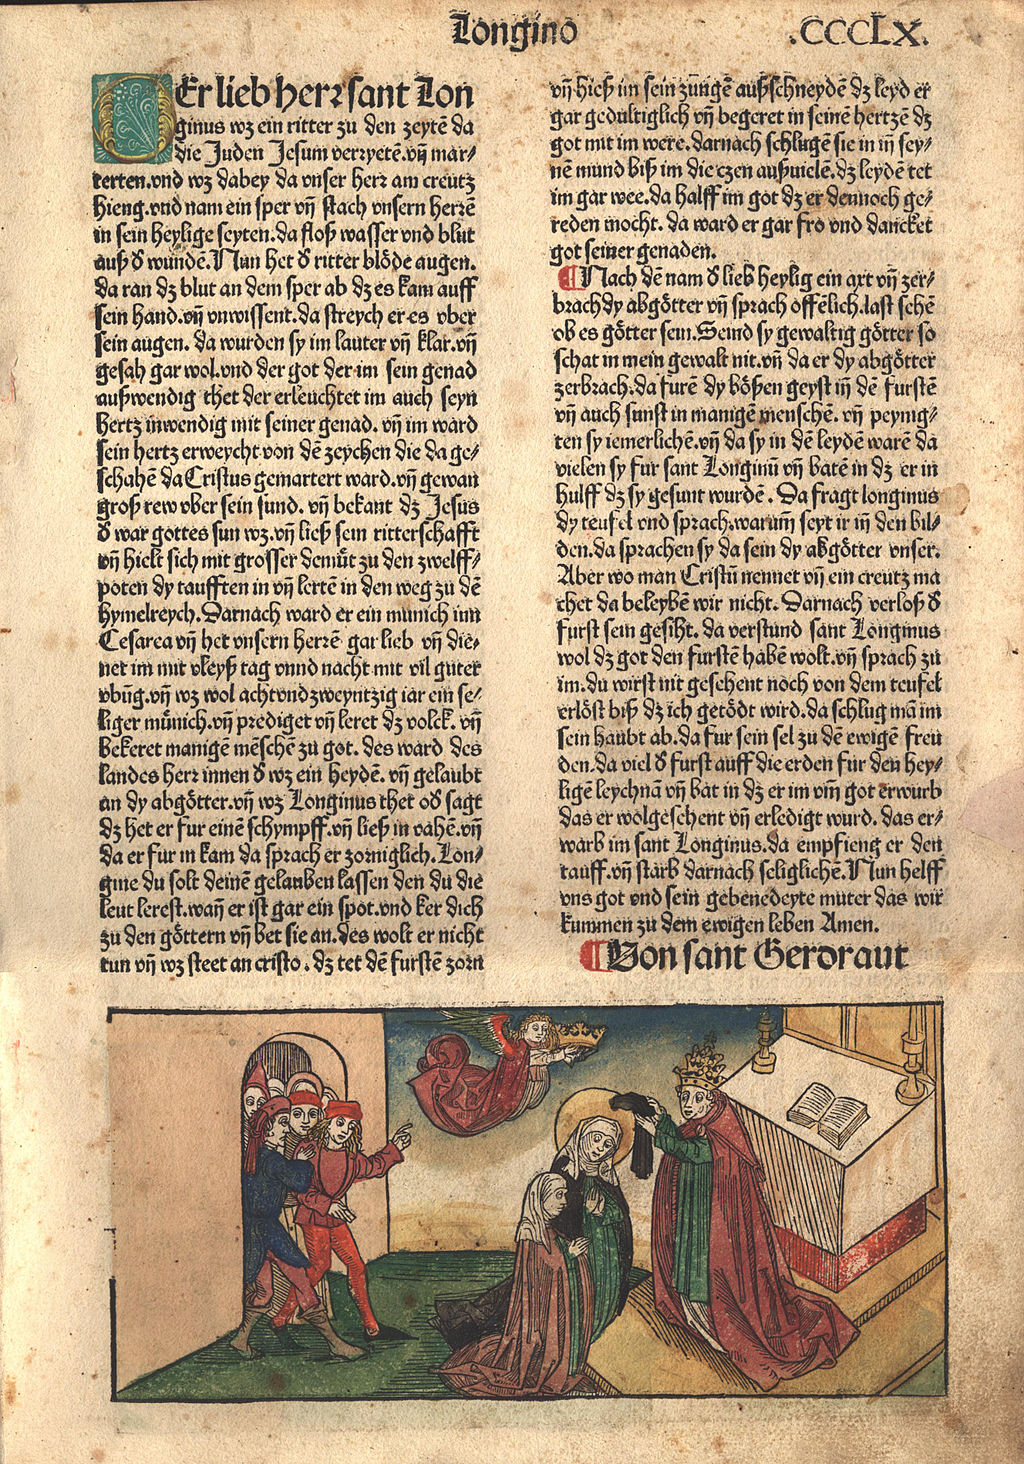 Longino
.CCCLX.
Er lieb herr sant Lon
ginus wz ein ritter zu den zeytē da
die Juden Jesum verryetē.vn̄ mar⸗
terten.vnd wz dabey da vnser herr am creutz
hieng.vnd nam ein sper vn̄ stach vnsern herrē
in sein heylige seyten.da floß wasser vnd blut
auß d̕ wundē.Nun het d̕ ritter blöde augen.
da ran dz blut an dem sper ab dz es kam auff
sein hand.vn̄ vnwissent.da streych er es vber
sein augen. da wurden sy im lauter vn̄ klar.vn̄
gesah gar wol.vnd der got der im sein genad
außwendig thet der erleuchtet im auch seyn
hertz inwendig mit seiner genad. vn̄ im ward
sein hertz erweycht von dē zeychen die da ge⸗
schahē da Cristus gemartert ward.vn̄ gewan
groß rew vber sein sund. vn̄ bekant dz Jesus
d̕ war gottes sun wz.vn̄ ließ sein ritterschafft
vn̄ hielt sich mit grosser demůt zu den zwelff⸗
poten dy taufften in vn̄ lertē in den weg zu dē
hymelreych.Darnach ward er ein munich inn
Cesarea vn̄ het vnsern herrē gar lieb vn̄ die⸗
net im mit vleyß tag vnnd nacht mit vil guter
vbūg.vn̄ wz wol achtvndzweyntzig iar ein se⸗
liger můnich.vn̄ prediget vn̄ leret dz volck. vn̄
bekeret manigē mēschē zu got. des ward des
landes herr innen d̕ wz ein heydē. vn̄ gelaubt
an dy abgötter.vn̄ wz Longinus thet od̕ sagt
dz het er fur einē schympff.vn̄ ließ in vahē.vn̄
da er fur in kam da sprach er zorniglich. Lon⸗
gine du solt deinē gelauben lassen den du die
leut lerest.wan̄ er ist gar ein spot.vnd ker dich
zu den göttern vn̄ bet sie an.des wolt er nicht
tun vn̄ wz steet an cristo. dz tet dē furstē zorn
vn̄ hieß im sein zungē außschneydē dz leyd er
gar gedultiglich vn̄ begeret in seinē hertzē dz
got mit im were.darnach schlugē sie in in sey⸗
nē mund biß im die czen außvielē.dz leydē tet
im gar wee.da halff im got dz er dennoch ge⸗
reden mocht. da ward er gar fro vnd dancket
got seiner genaden.
Nach dē nam d̕ lieb heylig ein axt vn̄ zer⸗
brach dy abgötter vn̄ sprach offēlich.last sehē
ob es götter sein.Seind sy gewaltig götter so
schat in mein gewalt nit.vn̄ da er dy abgötter
zerbrach.da furē dy bößen geyst in̄ dē furstē
vn̄ auch sunst in manigē menschē. vn̄ peynig⸗
ten sy iemerlichē.vn̄ da sy in dē leydē warē da
vielen sy fur sant Longinū vn̄ batē in dz er in
hulff dz sy gesunt wurdē. Da fragt longinus
dy teufel vnd sprach.warum̄ seyt ir in̄ den bil⸗
den.da sprachen sy da sein dy abgötter vnser.
Aber wo man Cristū nennet vn̄ ein creutz ma
chet da beleybē wir nicht. Darnach verloß d̕
furst sein gesiht. da verstund sant Longinus
wol dz got den furstē habē wolt.vn̄ sprach zu
im.du wirst nit gesehent noch von dem teufel
erlöst biß dz ich getödt wird.da schlug mā im
sein haubt ab.da fur sein sel zu dē ewigē freu
den.da viel d̕ furst auff die erden fur den hey⸗
ligē leychnā vn̄ bat in dz er im vm̄ got erwurb
das er wolgesehent vn̄ erledigt wurd. das er⸗
warb im sant Longinus.da empfieng er den
tauff.vn̄ starb darnach seliglichē.Nun helff
vns got vnd sein gebenedeyte muter das wir
kummen zu dem ewigen leben Amen.
Von sant Gerdraut